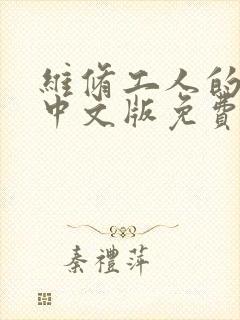 維修工人的
中文版免費
秦禮萍